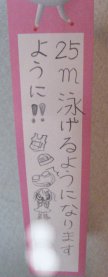 25m泳げるようになります
ように!!